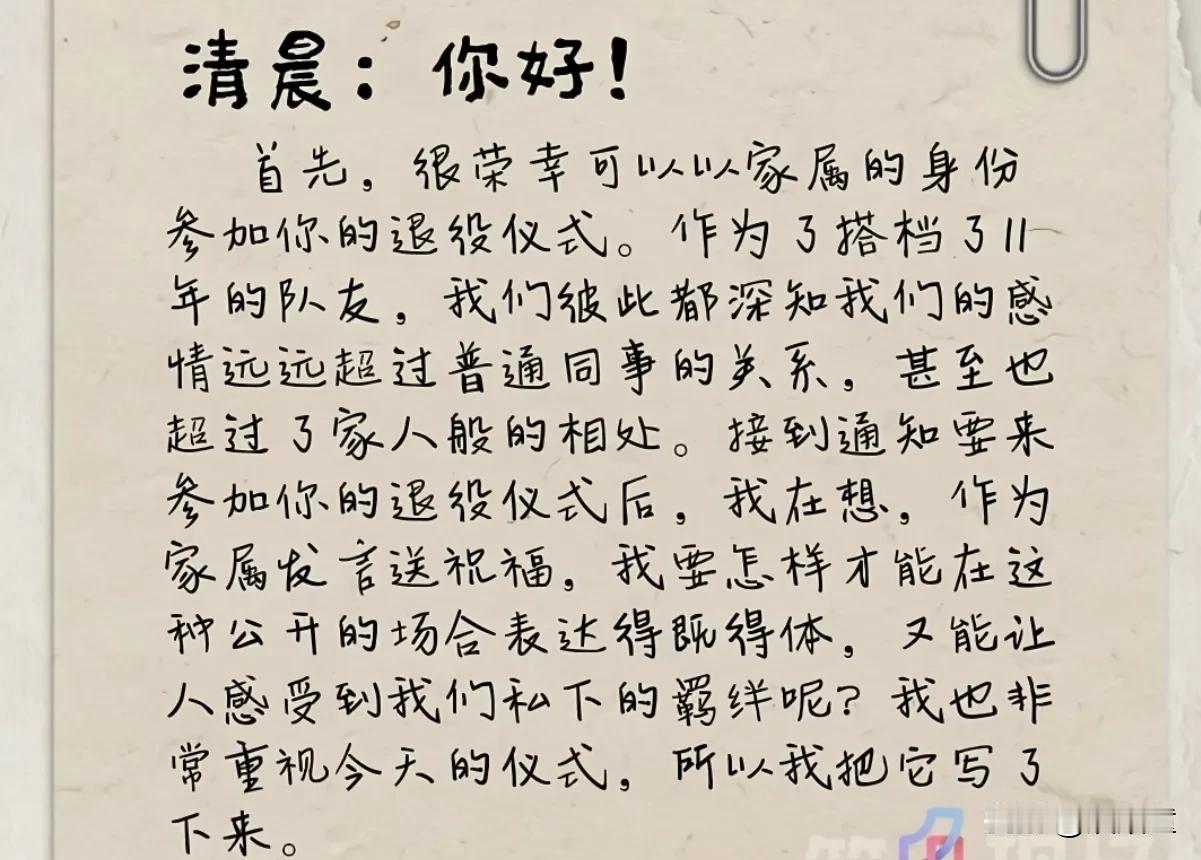 清晨：你好！
首先，很荣幸可以以家属的身份
参加你的退役仪式。作为了搭档了11
年的队友，我们彼此都深知我们的感
情远远超过普通同事的关系，甚至也
超过了家人般的相处。接到通知要来
参加你的退役仪式后，我在想，作为
家属发言送祝福，我要怎样才能在这
种公开的场合表达得既得体，又能让
人感受到我们私下的羁绊呢？我也非
常重视今天的仪式，所以我把它写了
下来。